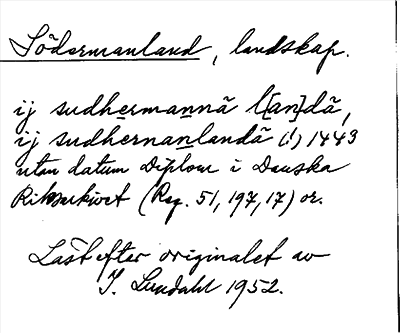 Södermanland, landskap.
ij sudhermannā l[an]dā,
ij sudhernanlandā (!) 1443
utan datum Diplom i Danska
Riksarkivet (Reg. 51, 197, 17) or.
Läst efter originalet av
I. Lundahl 1952.